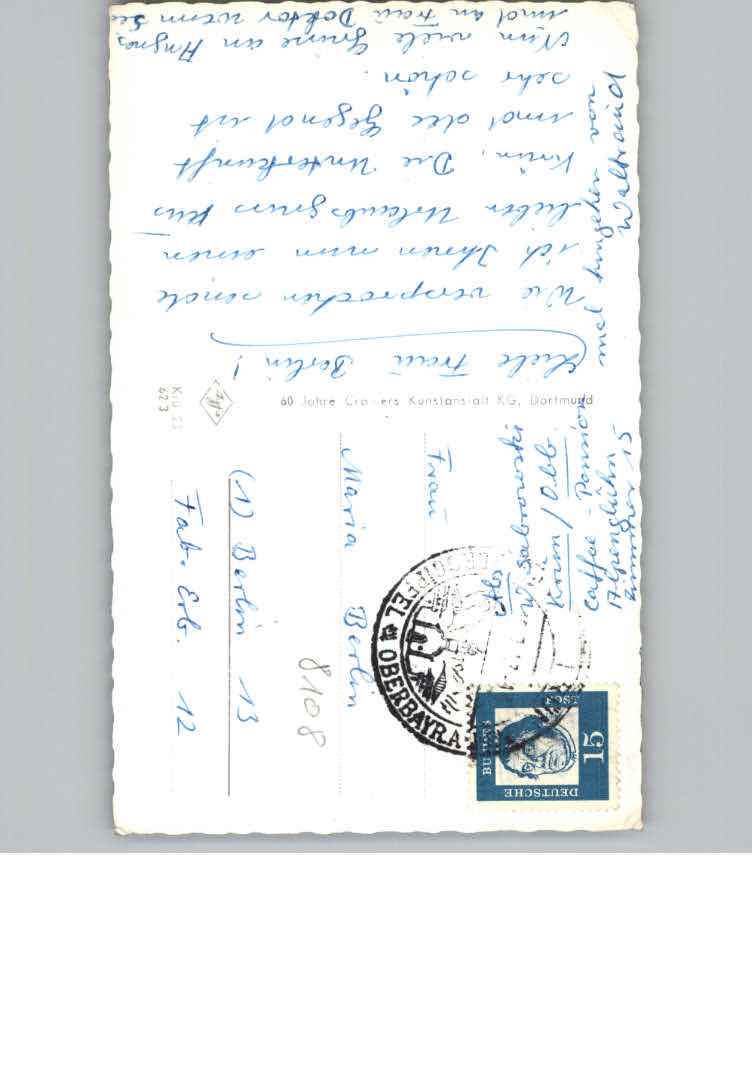 Liebe Frau Berlin!
Wie versprochen sende
ich Ihnen nun einen
lieben Urlaubsgruss aus
Krün. Die Unterkunft
und die Gegend ist
sehr schön.
Nun viele Grüsse an Agnes
und an Frau Doktor wenn Sie
mal hingehen von
Waltraud
60 Jahre Cramers Kunstanstalt KG, Dortmund
Krü 23
62 3
Abs.
W. Sabrowski
Krün / Obb.
Caffee - Pension
Alpenglühn
Zimmer 15
Frau
Maria Berlin
(1) Berlin 13
Fab. Erb. 12
8108
OBERBAYR
DEUTSCHE
BUNDES
15